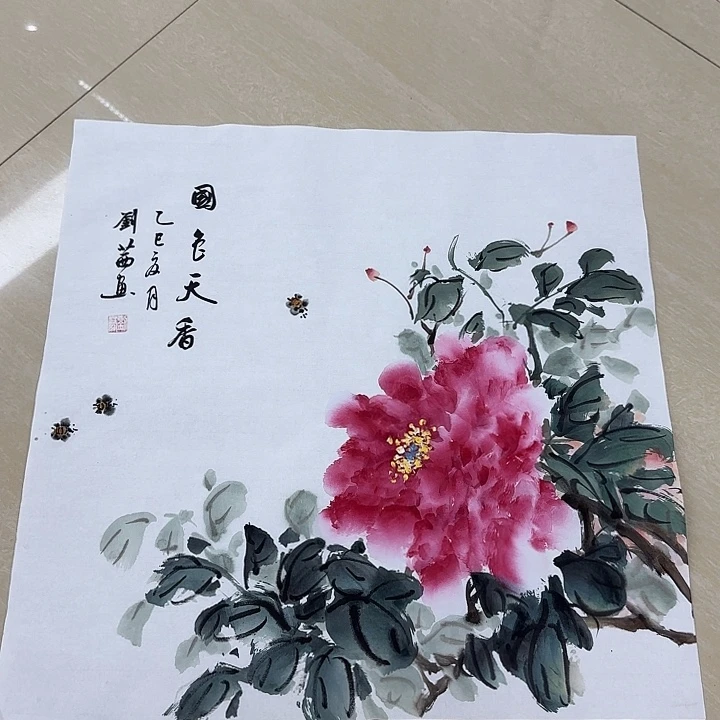 國色天香
乙巳夏月
劉茜畫